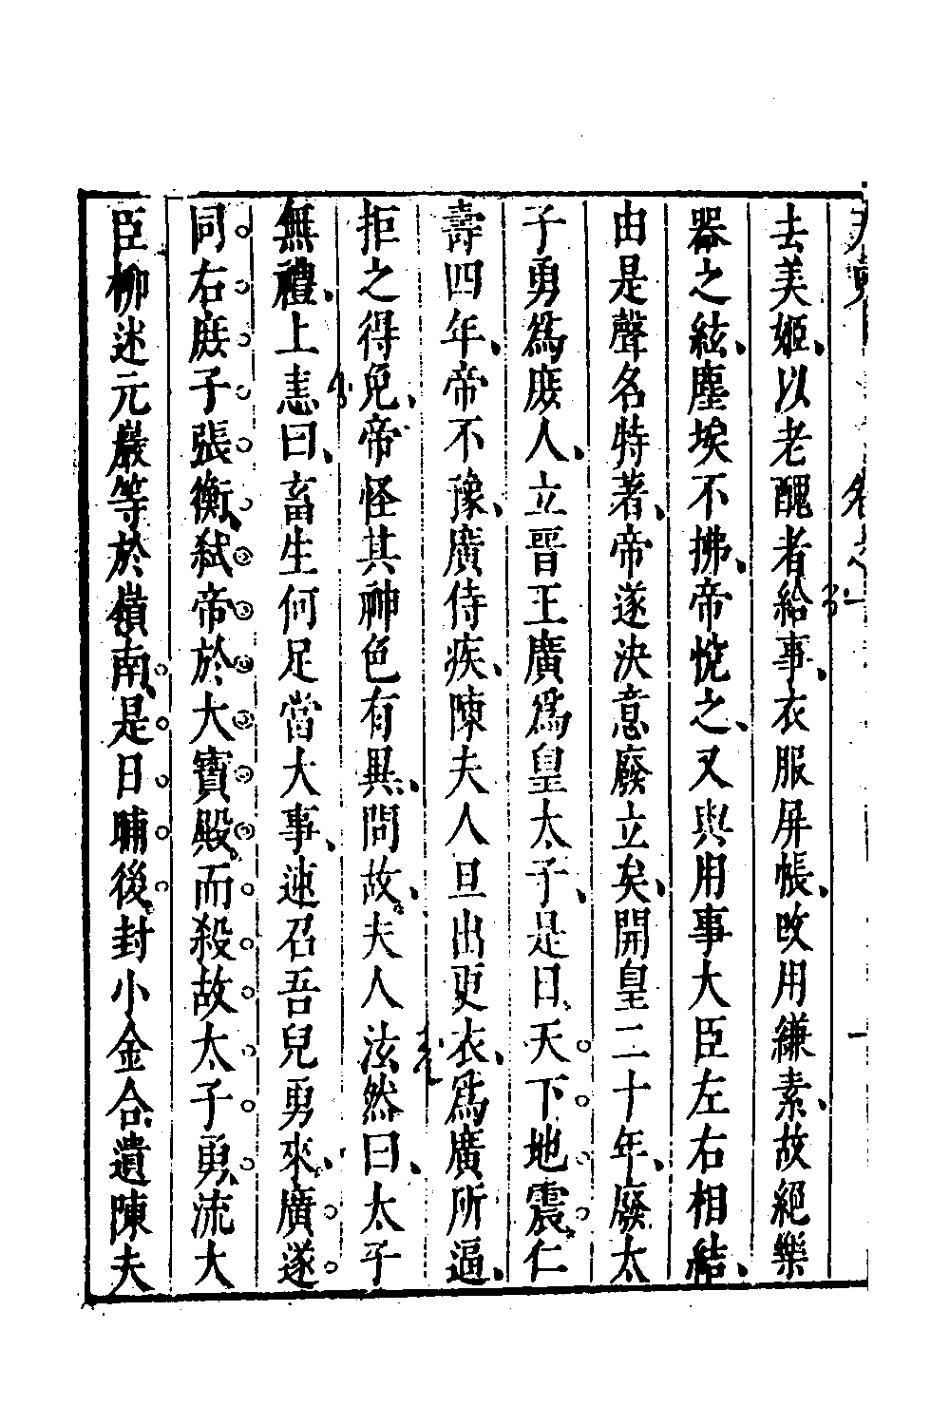 去美姬以老醜者給事衣服屏帳改用縑素故絕樂
器之絃塵埃不拂帝悅之又與用事大臣左右相結
由是聲名特著帝遂決意廢立矣開皇二十年廢太
子勇為庻人立晉王廣為皇太子是日天下地震仁
壽四年帝不豫廣侍疾陳夫人旦出更衣為廣所逼
拒之得免帝怪其神色有異問故夫人泫然曰太子
無禮上恚曰畜生何足當大事速召吾兒勇來廣遂
同右庻子張衡弒帝於大寶殿而殺故太子勇流大
臣柳述元巖等於嶺南是日晡後封小金合遺陳夫